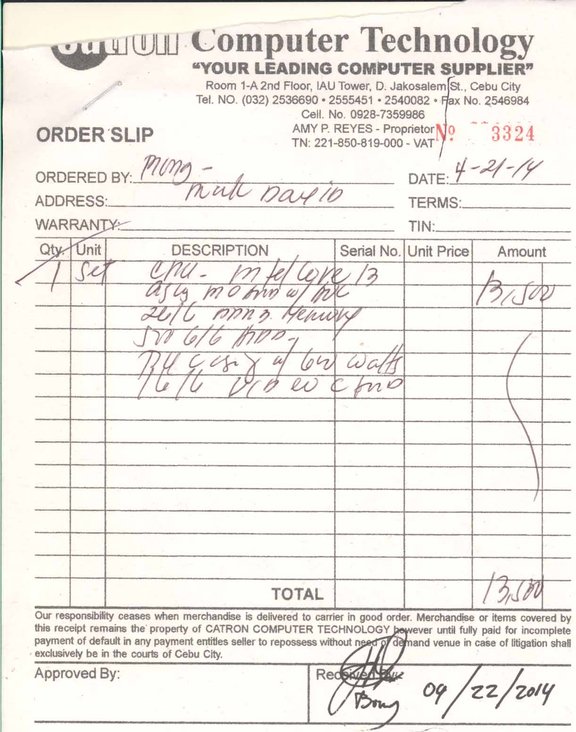 Catron Computer Technology
"YOUR LEADING COMPUTER SUPPLIER"
Room 1-A 2nd Floor, IAU Tower, D. Jakosalem St., Cebu City
Tel. NO. (032) 2536690 • 2555451 • 2540082 • Fax No. 2546984
Cell. No. 0928-7359986
AMY P. REYES - Proprietor
ORDER SLIP
TN: 221-850-819-000 - VAT
No 3324
ORDERED BY:
DATE: 4-21-14
ADDRESS: David
TERMS:
WARRANTY:
TIN:
Qty. Unit DESCRIPTION Serial No. Unit Price Amount
1 set CPU - Intel Core i3 13,500
Memory
w/ 600 watts
VIDEO CARD
TOTAL 13,500
Our responsibility ceases when merchandise is delivered to carrier in good order. Merchandise or items covered by
this receipt remains the property of CATRON COMPUTER TECHNOLOGY however until fully paid for incomplete
payment of default in any payment entitles seller to repossess without need of demand venue in case of litigation shall
exclusively be in the courts of Cebu City.
Approved By:
Received By:
Bong 04/22/2014